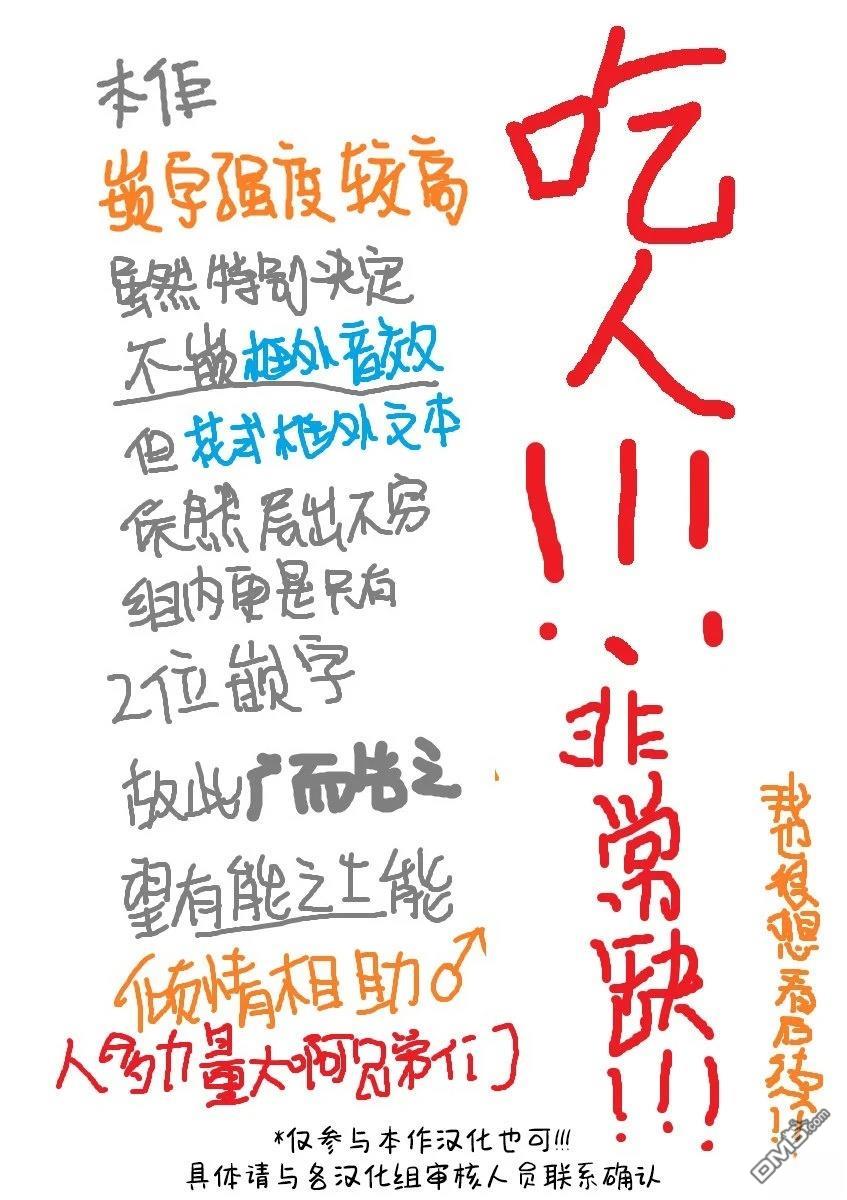 本作
嵌字强度较高
虽然特别决定
不嵌框外音效
但花式框外文本
依然层出不穷
组内更是只有
2位嵌字
故此广而告之
望有能之士能
倾情相助♂
人多力量大啊兄弟们
吃人!!!
、非常缺!!!
我也很想看后续!!
*仅参与本作汉化也可!!!
具体请与各汉化组审核人员联系确认
DM5.com